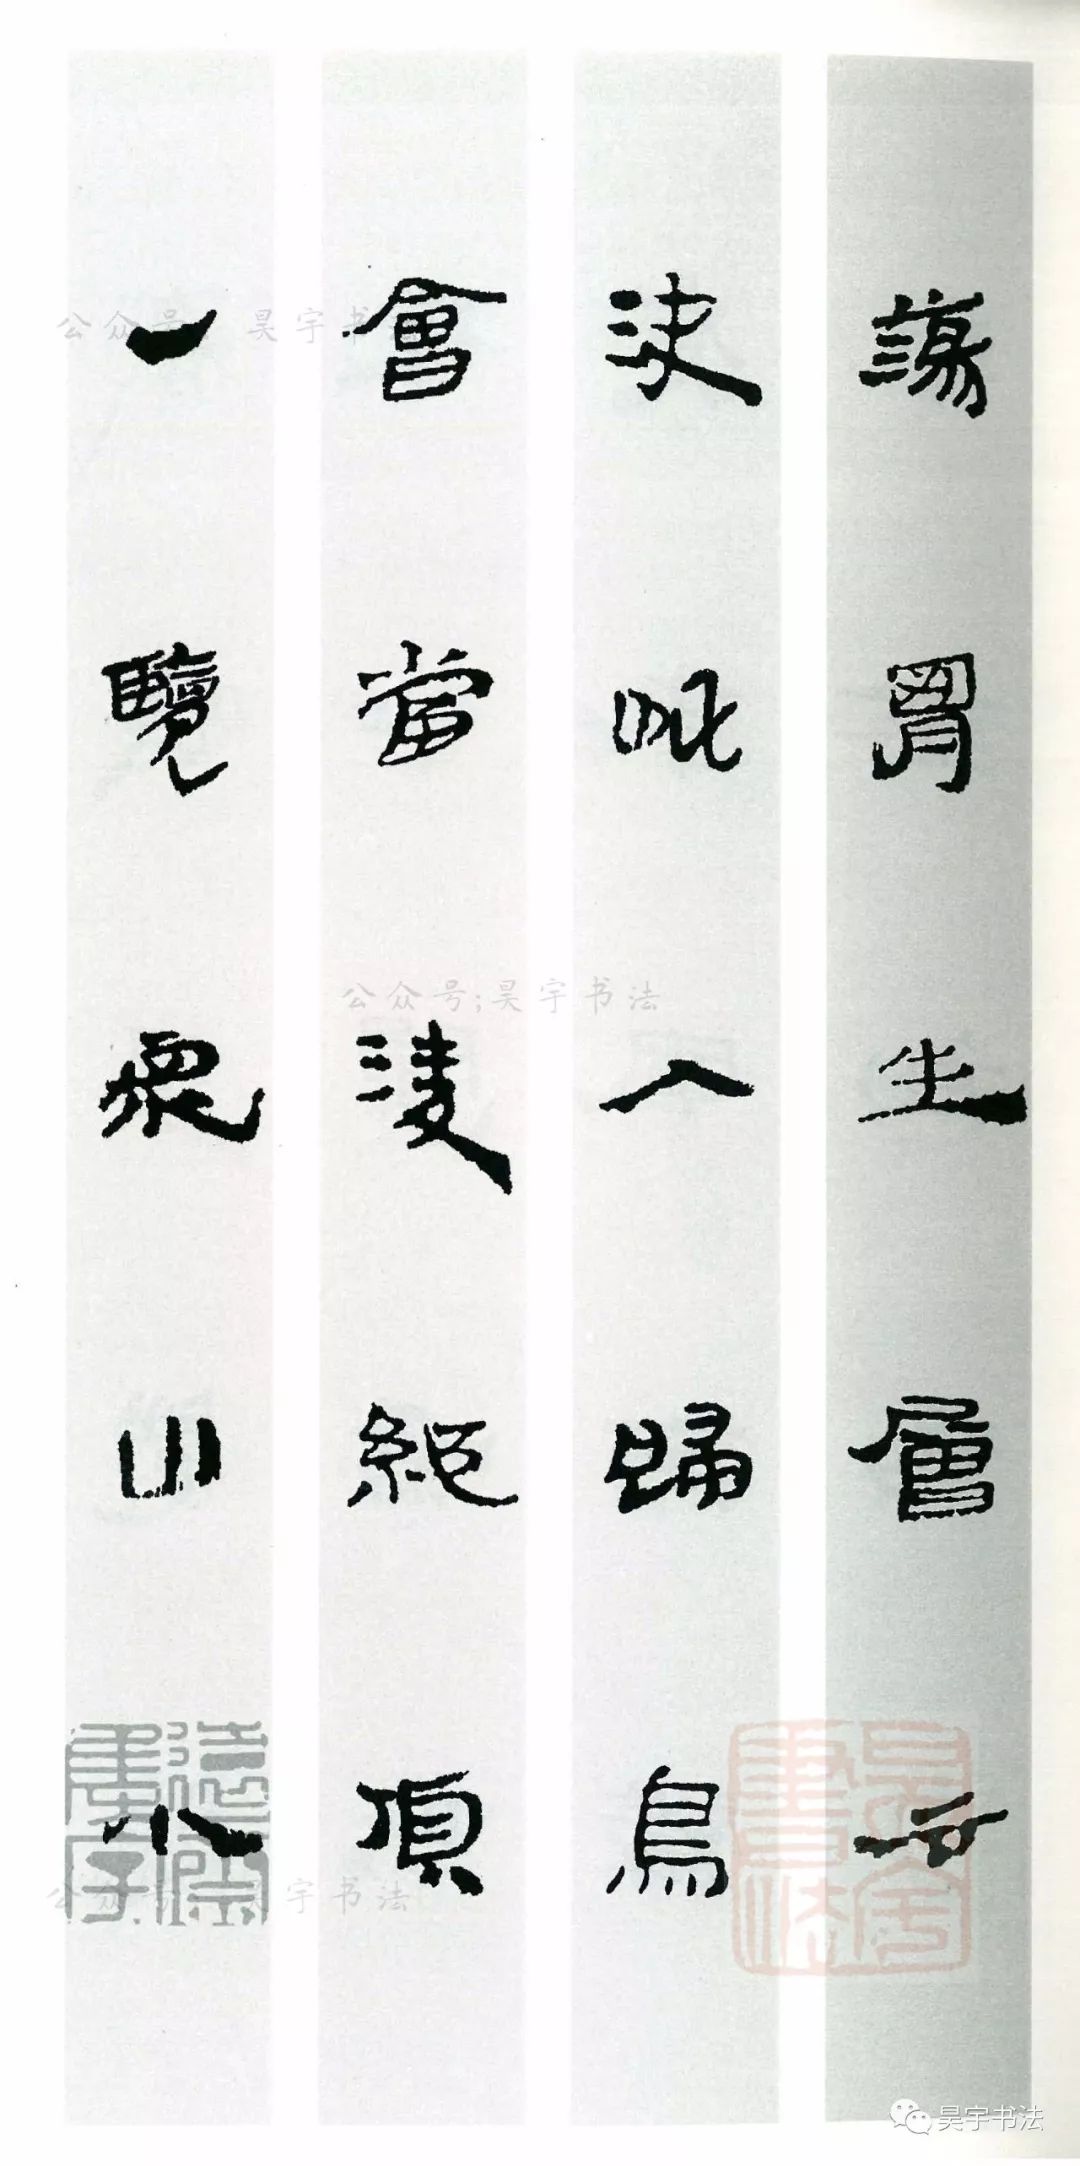 蕩胷生層云
決眦入歸鳥
會當淩絕頂
一覽眾山小
公众号 昊宇书
公众号;昊宇书法
公众号 宇书法
昊宇書法
昊宇书法